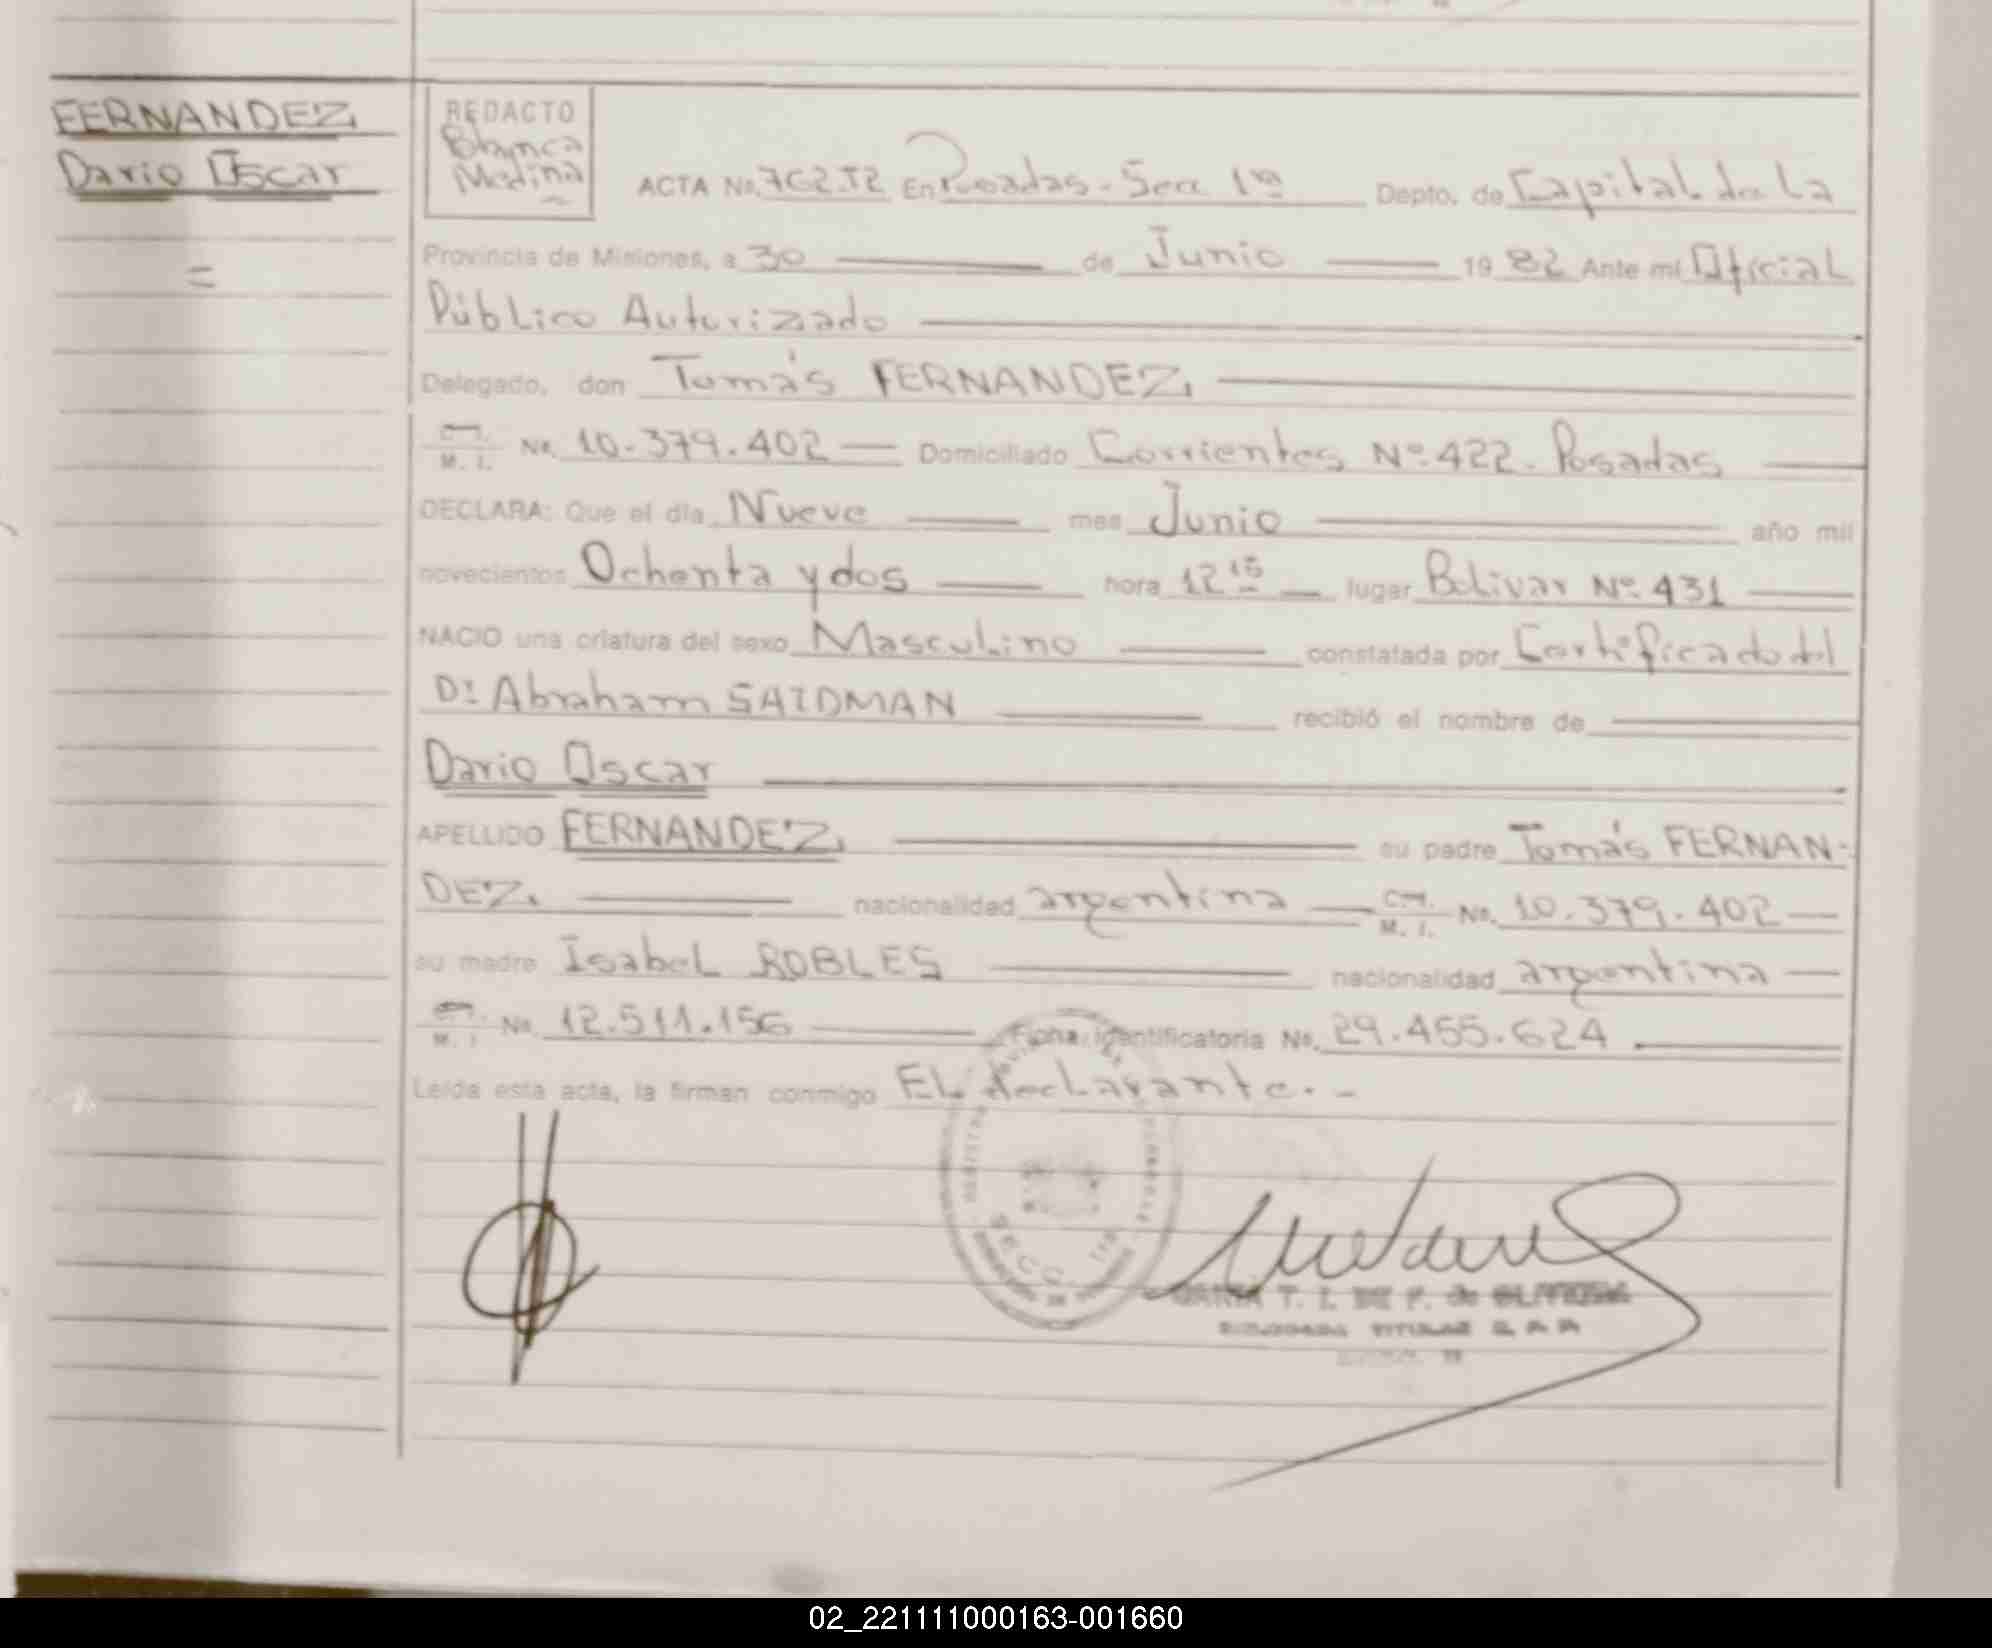 FERNANDEZ
Dario Oscar
=
REDACTO
Blanca
Medina
ACTA No. En Posadas - Secc 1ª Depto. de Capital de La
Provincia de Misiones, a 30 de Junio 19 82 Ante mí Oficial
Público Autorizado
Delegado, don Tomás FERNANDEZ
C.I.
M. I. No. 10.379.402 Domiciliado Corrientes Nº 422. Posadas
DECLARA: Que el día Nueve mes Junio año mil
novecientos Ochenta y dos hora 12 15 lugar Bolivar Nº 431
NACIO una criatura del sexo Masculino constatada por Certificado del
Dr Abraham SAIDMAN recibió el nombre de
Dario Oscar
APELLIDO FERNANDEZ su padre Tomás FERNAN-
DEZ. nacionalidad argentina C.I.
M. I. No. 10.379.402
su madre Isabel ROBLES nacionalidad argentina
M. I. No. 12.511.156 Ficha identificatoria No. 29.455.624
Leída esta acta, la firman conmigo El declarante. -
SECC. 1ra
MARIA T. I. DE F. de
TITULAR
02_221111000163-001660